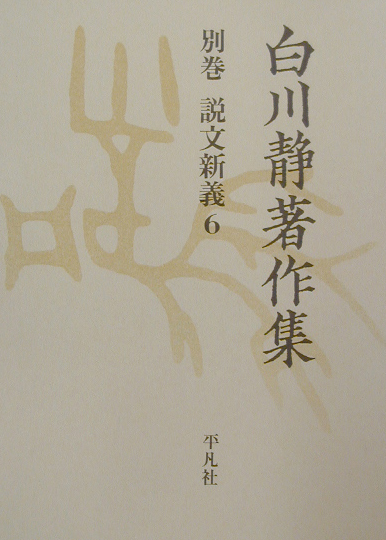 白川静著作集
別巻 説文新義 6
平凡社